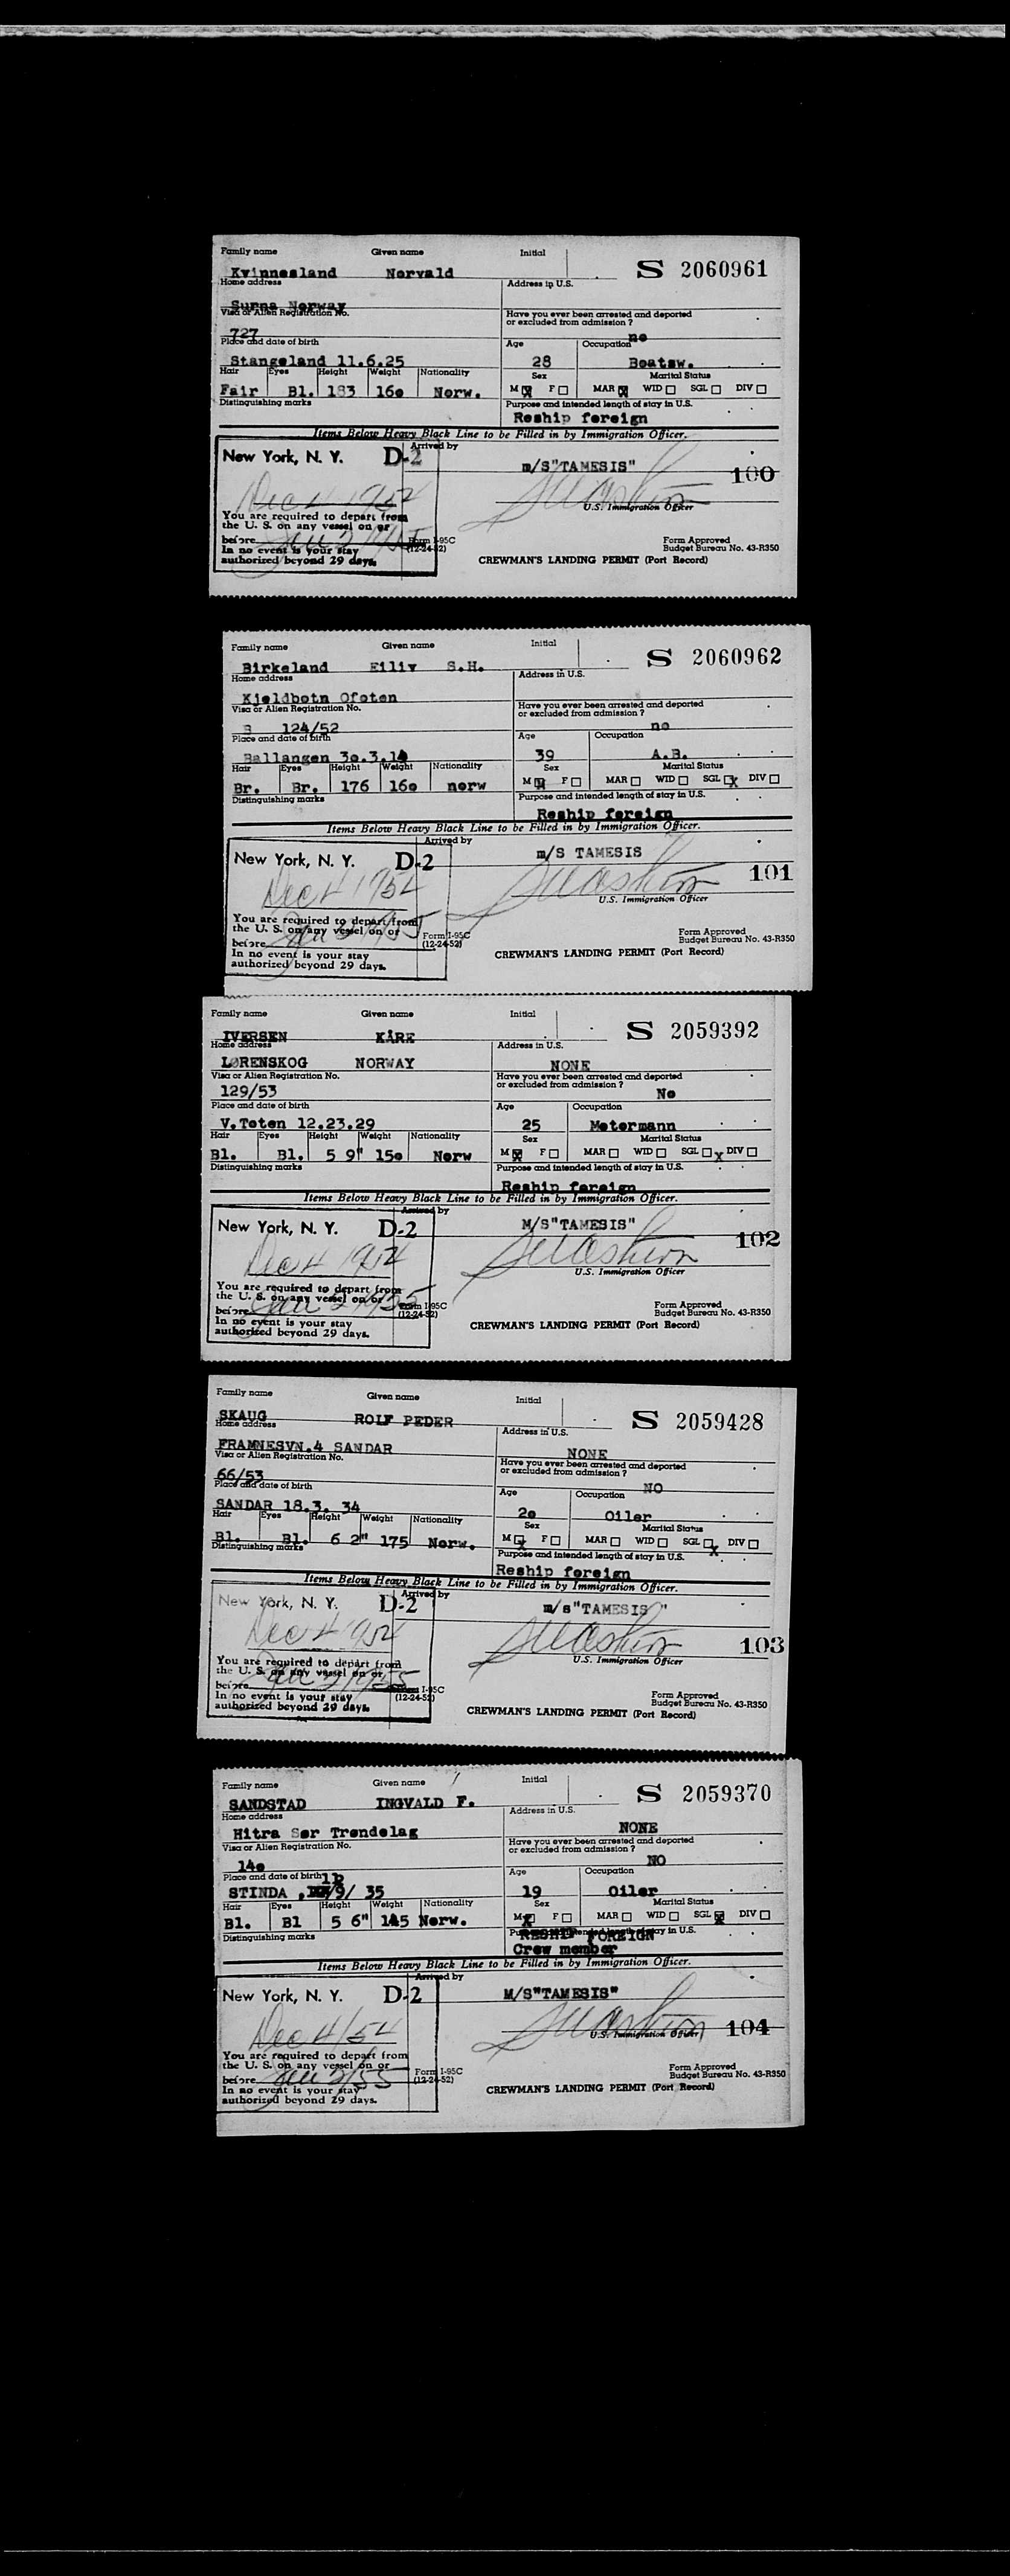 Family name Given name Initial
Kvinnesland Norvald S 2060961
Home address Address in U.S.
Norway
Visa or Alien Registration No. Have you ever been arrested and deported
or excluded from admission ?
727 no
Place and date of birth Age Occupation
Stangeland 11.6.25 28 Boatsw.
Hair Eyes Height Weight Nationality Sex Marital Status
Fair Bl. 183 160 Norw. M X F MAR X WID SGL DIV
Distinguishing marks Purpose and intended length of stay in U.S.
Reship foreign
Items Below Heavy Black Line to be Filled in by Immigration Officer.
New York, N. Y. D-2 Arrived by
m/S"TAMESIS" 100
Dec 4 1954
U.S. Immigration Officer
You are required to depart from
the U. S. on any vessel on or
before Jan 2 1955 Form I-95C Form Approved
In no event is your stay (12-24-52) Budget Bureau No. 43-R350
authorized beyond 29 days. CREWMAN'S LANDING PERMIT (Port Record)
Family name Given name Initial
Birkeland Eiliv S.H. S 2060962
Home address Address in U.S.
Kjeldbotn Ofoten
Visa or Alien Registration No. Have you ever been arrested and deported
or excluded from admission ?
124/52 no
Place and date of birth Age Occupation
Ballangen 30.3.14 39 A.B.
Hair Eyes Height Weight Nationality Sex Marital Status
Br. Br. 176 160 norw M X F MAR WID SGL X DIV
Distinguishing marks Purpose and intended length of stay in U.S.
Reship foreign
Items Below Heavy Black Line to be Filled in by Immigration Officer.
New York, N. Y. D-2 Arrived by
m/S TAMESIS 101
Dec 4 1954
U.S. Immigration Officer
You are required to depart from
the U. S. on any vessel on or
before Jan 2 1955 Form I-95C Form Approved
In no event is your stay (12-24-52) Budget Bureau No. 43-R350
authorized beyond 29 days. CREWMAN'S LANDING PERMIT (Port Record)
Family name Given name Initial
IVERSEN KÅRE S 2059392
Home address Address in U.S.
LØRENSKOG NORWAY NONE
Visa or Alien Registration No. Have you ever been arrested and deported
or excluded from admission ?
129/53 No
Place and date of birth Age Occupation
V.Toten 12.23.29 25 Motormann
Hair Eyes Height Weight Nationality Sex Marital Status
Bl. Bl. 5 9" 150 Norw M X F MAR WID SGL X DIV
Distinguishing marks Purpose and intended length of stay in U.S.
Reship foreign
Items Below Heavy Black Line to be Filled in by Immigration Officer.
New York, N. Y. D-2 Arrived by
M/S"TAMESIS" 102
Dec 4 1954
U.S. Immigration Officer
You are required to depart from
the U. S. on any vessel on or
before Jan 2 1955 Form I-95C Form Approved
In no event is your stay (12-24-52) Budget Bureau No. 43-R350
authorized beyond 29 days. CREWMAN'S LANDING PERMIT (Port Record)
Family name Given name Initial
SKAUG ROLF PEDER S 2059428
Home address Address in U.S.
FRAMNESVN.4 SANDAR NONE
Visa or Alien Registration No. Have you ever been arrested and deported
or excluded from admission ?
66/53 NO
Place and date of birth Age Occupation
SANDAR 18.3. 34 20 Oiler
Hair Eyes Height Weight Nationality Sex Marital Status
Bl. Bl. 6 2" 175 Norw. M X F MAR WID SGL X DIV
Distinguishing marks Purpose and intended length of stay in U.S.
Reship foreign
Items Below Heavy Black Line to be Filled in by Immigration Officer.
New York, N. Y. D-2 Arrived by
m/s"TAMESIS "
Dec 4 1954 103
U.S. Immigration Officer
You are required to depart from
the U. S. on any vessel on or
before Jan 2 1955 Form I-95C Form Approved
In no event is your stay (12-24-52) Budget Bureau No. 43-R350
authorized beyond 29 days. CREWMAN'S LANDING PERMIT (Port Record)
Family name Given name Initial
SANDSTAD INGVALD F. S 2059370
Home address Address in U.S.
Hitra Sør Trøndelag NONE
Visa or Alien Registration No. Have you ever been arrested and deported
or excluded from admission ?
140 NO
Place and date of birth Age Occupation
STINDA /9/ 35 19 Oiler
Hair Eyes Height Weight Nationality Sex Marital Status
Bl. Bl 5 6" 145 Norw. M X F MAR WID SGL X DIV
Distinguishing marks Purpose and intended length of stay in U.S.
RESHIP FOREIGN
Crew member
Items Below Heavy Black Line to be Filled in by Immigration Officer.
New York, N. Y. D-2 Arrived by
M/S"TAMESIS"
Dec 4/54 104
U.S. Immigration Officer
You are required to depart from
the U. S. on any vessel on or
before Jan 2/55 Form I-95C Form Approved
In no event is your stay (12-24-52) Budget Bureau No. 43-R350
authorized beyond 29 days. CREWMAN'S LANDING PERMIT (Port Record)